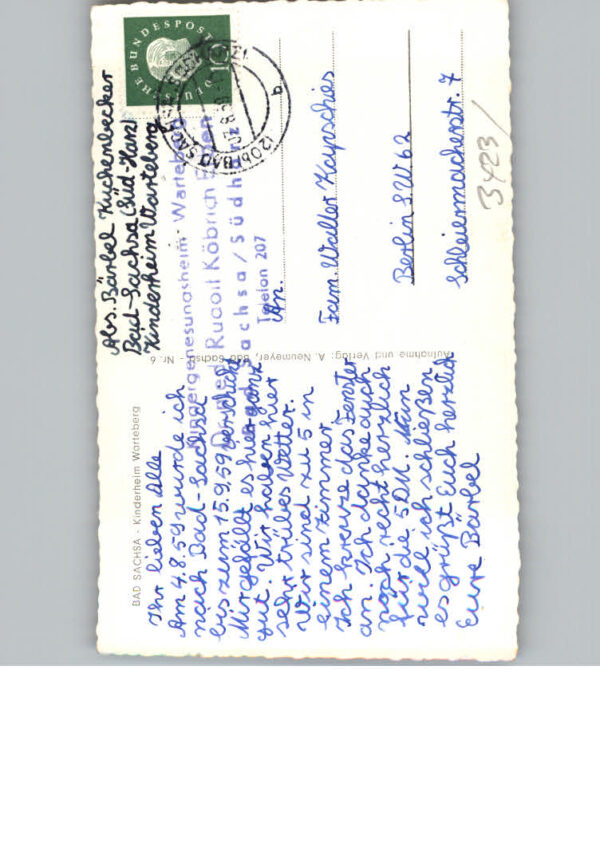 BAD SACHSA - Kinderheim Warteberg
Ihr lieben Alle
Am 4.8.59 wurde ich
nach Bad-Sachsa
bis zum 15.9.59 verschickt
Mir gefällt es hier ganz
gut. Wir haben hier
sehr trübes Wetter.
Wir sind zu 5 in
einem Zimmer.
Ich kreuze das Fenster
an. Ich danke auch
noch recht herzlich
für die 5 DM. Nun
will ich schließen
es grüßt Euch herzlich
Eure Bärbel
Aufnahme und Verlag: A. Neumeyer, Bad Sachsa - Nr. 6
Abs. Bärbel Küchenbecker
Bad-Sachsa (Süd-Harz)
Kinderheim Warteberg
Kindergenesungsheim - Warteberg
Rudolf Köbrich
Bad Sachsa / Südharz
Telefon 207
DEUTSCHE BUNDESPOST
10
(20b) BAD SACHSA
An.
Fam. Walter Kapschies
Berlin S.W 62
Schleiermacherstr. 7
3423/